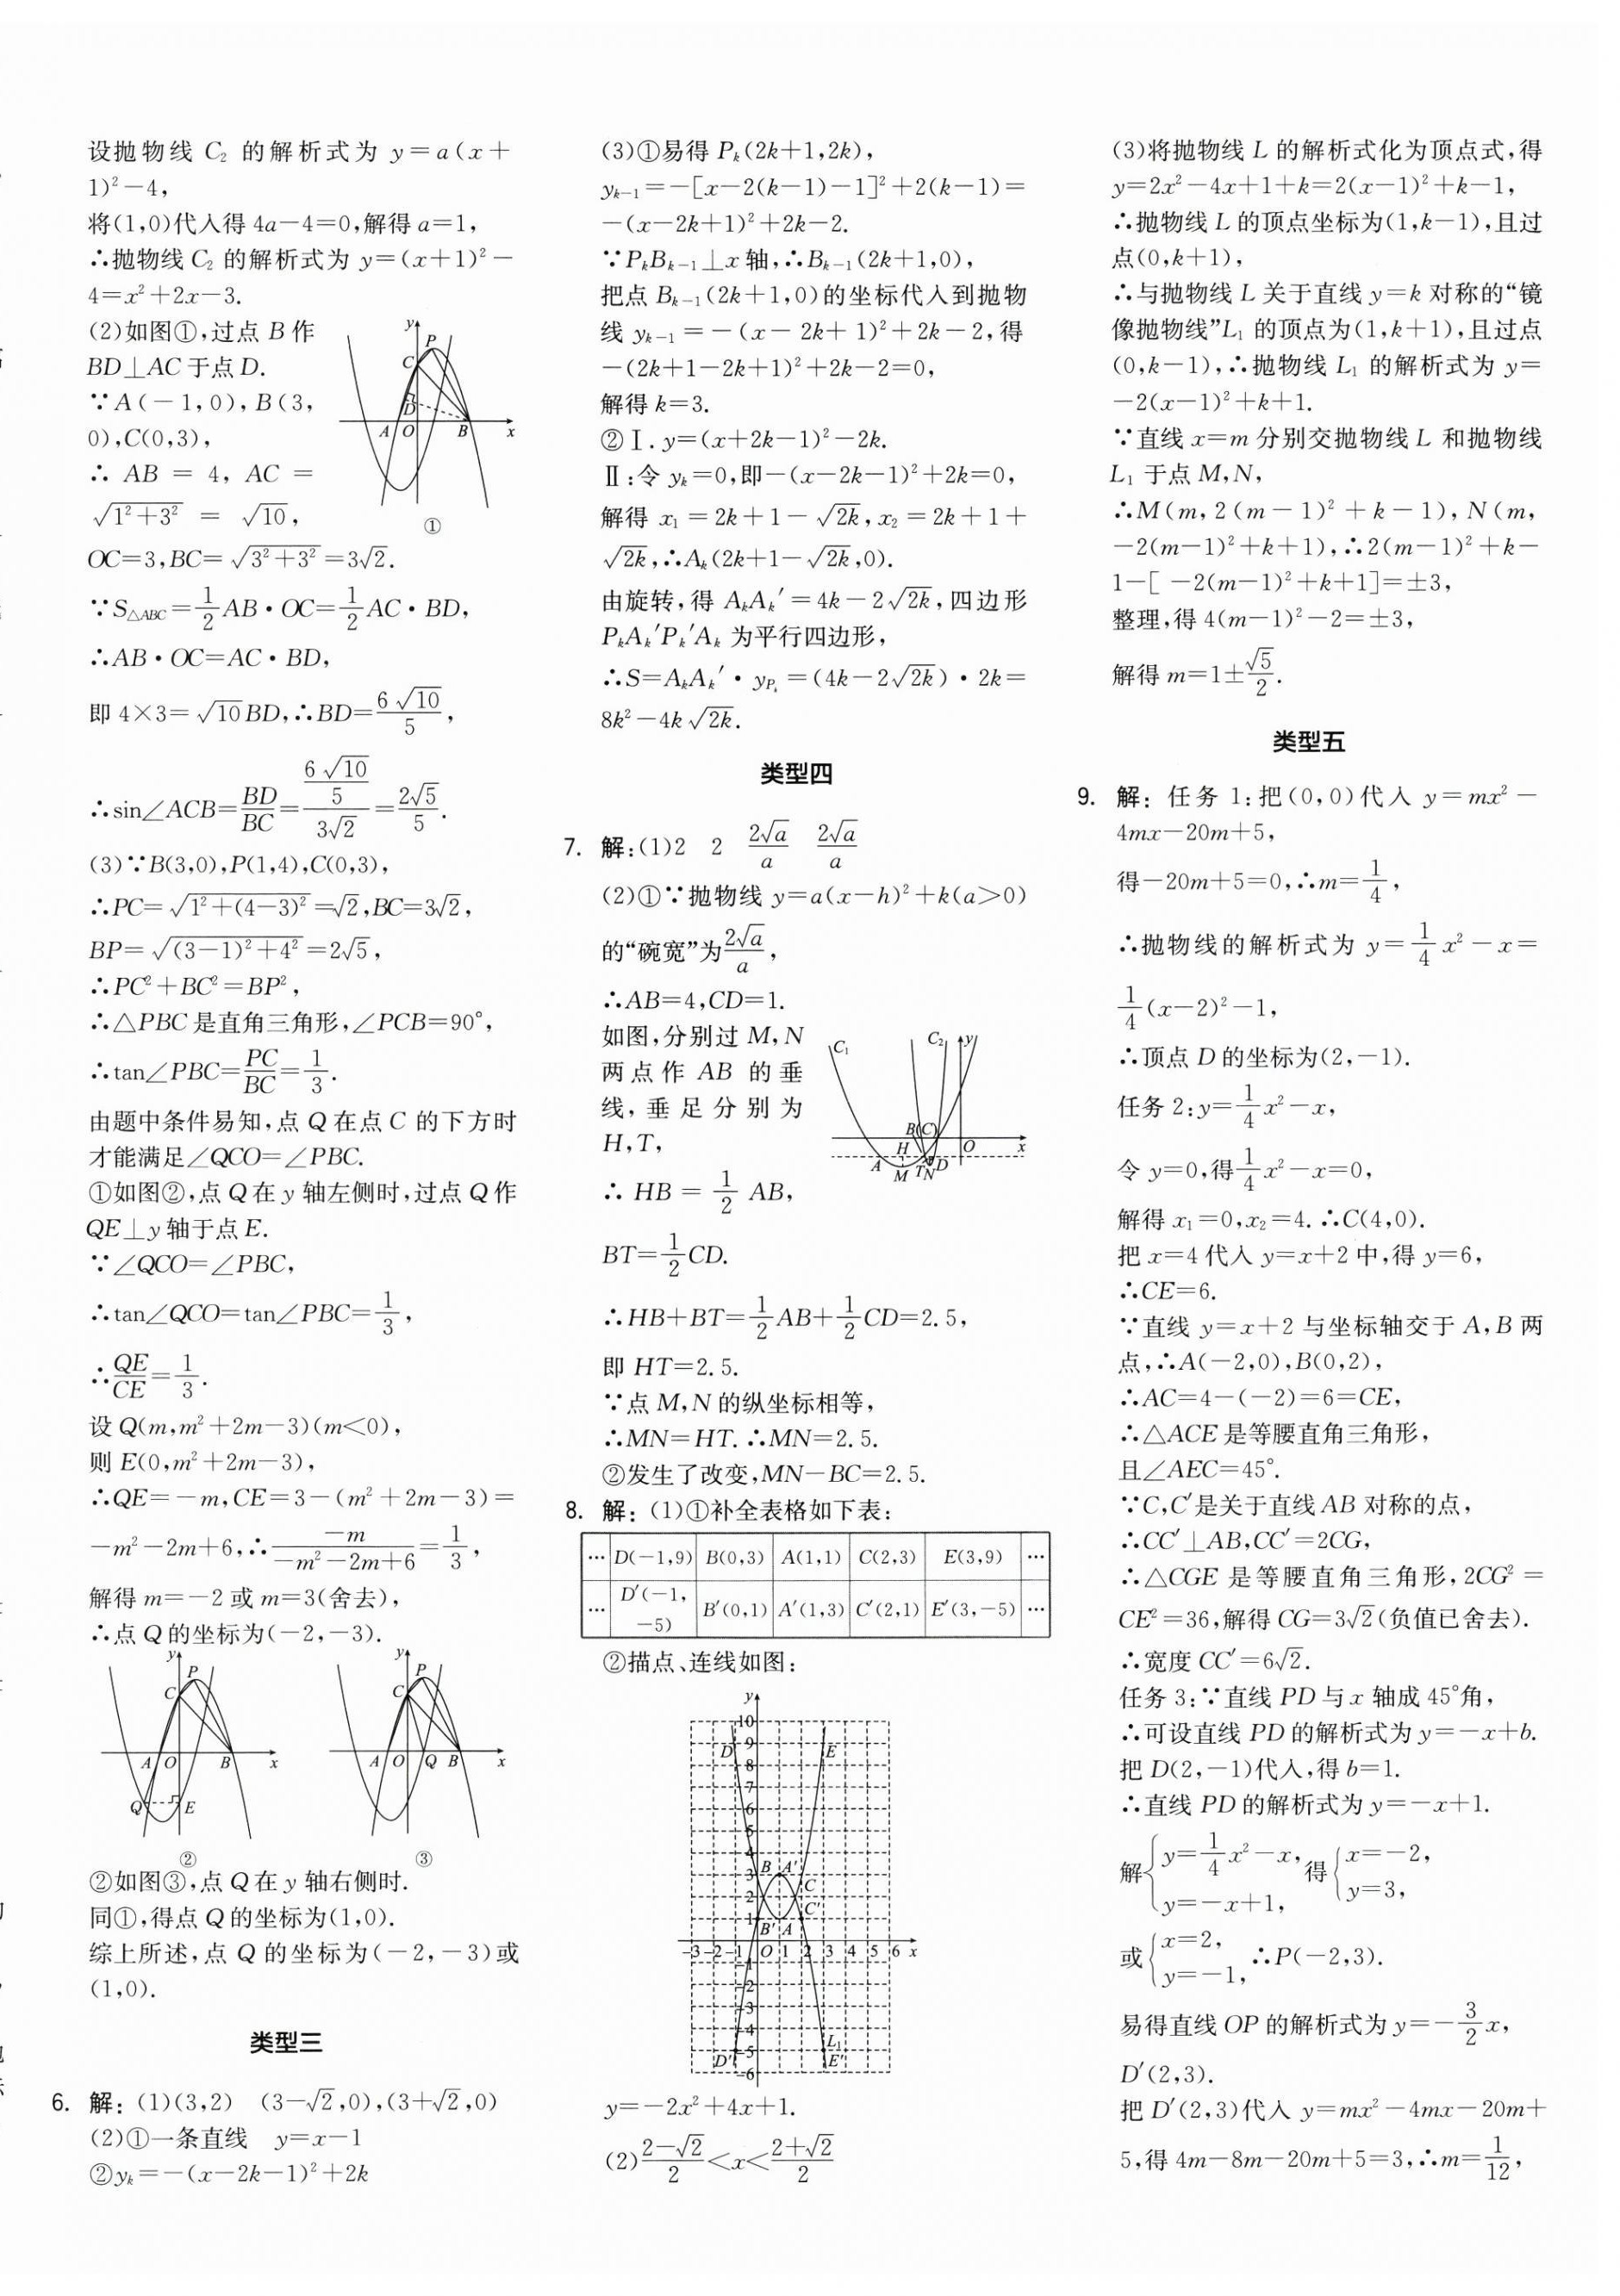 设抛物线 C₂ 的解析式为 y=a(x+
1)²-4,
将(1,0)代入得 4a-4=0,解得 a=1,
∴抛物线 C₂ 的解析式为 y=(x+1)²-
4=x²+2x-3.
(2)如图①,过点 B 作
BD⊥AC 于点 D.
∵A(-1,0),B(3,
0),C(0,3),
∴ AB = 4, AC =
√(1²+3²) = √10,
OC=3,BC=√(3²+3²)=3√2.
∵S△ABC=1/2 AB·OC=1/2 AC·BD,
∴AB·OC=AC·BD,
即 4×3=√10 BD,∴BD=6√10/5,
∴sin∠ACB=BD/BC=(6√10/5)/(3√2)=2√5/5.
y
P
C
D
A O B x
①
(3)∵B(3,0),P(1,4),C(0,3),
∴PC=√(1²+(4-3)²)=√2,BC=3√2,
BP=√((3-1)²+4²)=2√5,
∴PC²+BC²=BP²,
∴△PBC 是直角三角形,∠PCB=90°,
∴tan∠PBC=PC/BC=1/3.
由题中条件易知,点 Q 在点 C 的下方时
才能满足∠QCO=∠PBC.
①如图②,点 Q 在 y 轴左侧时,过点 Q 作
QE⊥y 轴于点 E.
∵∠QCO=∠PBC,
∴tan∠QCO=tan∠PBC=1/3,
∴QE/CE=1/3.
设 Q(m,m²+2m-3)(m<0),
则 E(0,m²+2m-3),
∴QE=-m,CE=3-(m²+2m-3)=
-m²-2m+6,∴-m/(-m²-2m+6)=1/3,
解得 m=-2 或 m=3(舍去),
∴点 Q 的坐标为(-2,-3).
y
P
C
A O B x
Q E
②
y
P
C
A O Q B x
③
②如图③,点 Q 在 y 轴右侧时.
同①,得点 Q 的坐标为(1,0).
综上所述,点 Q 的坐标为(-2,-3)或
(1,0).
类型三
6. 解:(1)(3,2) (3-√2,0),(3+√2,0)
(2)①一条直线 y=x-1
②yₖ=-(x-2k-1)²+2k
(3)①易得 Pₖ(2k+1,2k),
yₖ₋₁=-[x-2(k-1)-1]²+2(k-1)=
-(x-2k+1)²+2k-2.
∵PₖBₖ₋₁⊥x 轴,∴Bₖ₋₁(2k+1,0),
把点 Bₖ₋₁(2k+1,0)的坐标代入到抛物
线 yₖ₋₁=-(x-2k+1)²+2k-2,得
-(2k+1-2k+1)²+2k-2=0,
解得 k=3.
②Ⅰ.y=(x+2k-1)²-2k.
Ⅱ:令 yₖ=0,即-(x-2k-1)²+2k=0,
解得 x₁=2k+1-√(2k),x₂=2k+1+
√(2k),∴Aₖ(2k+1-√(2k),0).
由旋转,得 AₖAₖ′=4k-2√(2k),四边形
PₖAₖ′Pₖ′Aₖ 为平行四边形,
∴S=AₖAₖ′·y_Pₖ=(4k-2√(2k))·2k=
8k²-4k√(2k).
类型四
7. 解:(1)2 2 2√a/a 2√a/a
(2)①∵抛物线 y=a(x-h)²+k(a>0)
的“碗宽”为2√a/a,
∴AB=4,CD=1.
如图,分别过 M,N
两点作 AB 的垂
线,垂足分别为
H,T,
∴ HB = 1/2 AB,
BT=1/2 CD.
C₁ C₂ y
B(C)
H O x
A M T N D
∴HB+BT=1/2 AB+1/2 CD=2.5,
即 HT=2.5.
∵点 M,N 的纵坐标相等,
∴MN=HT.∴MN=2.5.
②发生了改变,MN-BC=2.5.
8. 解:(1)①补全表格如下表:
… D(-1,9) B(0,3) A(1,1) C(2,3) E(3,9) …
… D′(-1,-5) B′(0,1) A′(1,3) C′(2,1) E′(3,-5) …
②描点、连线如图:
y
10
D 9 E
8
7
6
5
4
B A′
3
C
2
C′
1
B′ A
-3 -2 -1 O 1 2 3 4 5 6 x
-1
-2
-3
-4
L₁
D′ -5 E′
-6
y=-2x²+4x+1.
(2)(2-√2)/2<x<(2+√2)/2
(3)将抛物线 L 的解析式化为顶点式,得
y=2x²-4x+1+k=2(x-1)²+k-1,
∴抛物线 L 的顶点坐标为(1,k-1),且过
点(0,k+1),
∴与抛物线 L 关于直线 y=k 对称的“镜
像抛物线”L₁ 的顶点为(1,k+1),且过点
(0,k-1),∴抛物线 L₁ 的解析式为 y=
-2(x-1)²+k+1.
∵直线 x=m 分别交抛物线 L 和抛物线
L₁ 于点 M,N,
∴M(m,2(m-1)²+k-1),N(m,
-2(m-1)²+k+1),∴2(m-1)²+k-
1-[-2(m-1)²+k+1]=±3,
整理,得 4(m-1)²-2=±3,
解得 m=1±√5/2.
类型五
9. 解:任务 1:把(0,0)代入 y=mx²-
4mx-20m+5,
得-20m+5=0,∴m=1/4,
∴抛物线的解析式为 y=1/4 x²-x=
1/4(x-2)²-1,
∴顶点 D 的坐标为(2,-1).
任务 2:y=1/4 x²-x,
令 y=0,得1/4 x²-x=0,
解得 x₁=0,x₂=4.∴C(4,0).
把 x=4 代入 y=x+2 中,得 y=6,
∴CE=6.
∵直线 y=x+2 与坐标轴交于 A,B 两
点,∴A(-2,0),B(0,2),
∴AC=4-(-2)=6=CE,
∴△ACE 是等腰直角三角形,
且∠AEC=45°.
∵C,C′是关于直线 AB 对称的点,
∴CC′⊥AB,CC′=2CG,
∴△CGE 是等腰直角三角形,2CG²=
CE²=36,解得 CG=3√2(负值已舍去).
∴宽度 CC′=6√2.
任务 3:∵直线 PD 与 x 轴成 45°角,
∴可设直线 PD 的解析式为 y=-x+b.
把 D(2,-1)代入,得 b=1.
∴直线 PD 的解析式为 y=-x+1.
解{y=1/4 x²-x, y=-x+1,得{x=-2, y=3,
或{x=2, y=-1,∴P(-2,3).
易得直线 OP 的解析式为 y=-3/2 x,
D′(2,3).
把 D′(2,3)代入 y=mx²-4mx-20m+
5,得 4m-8m-20m+5=3,∴m=1/12,